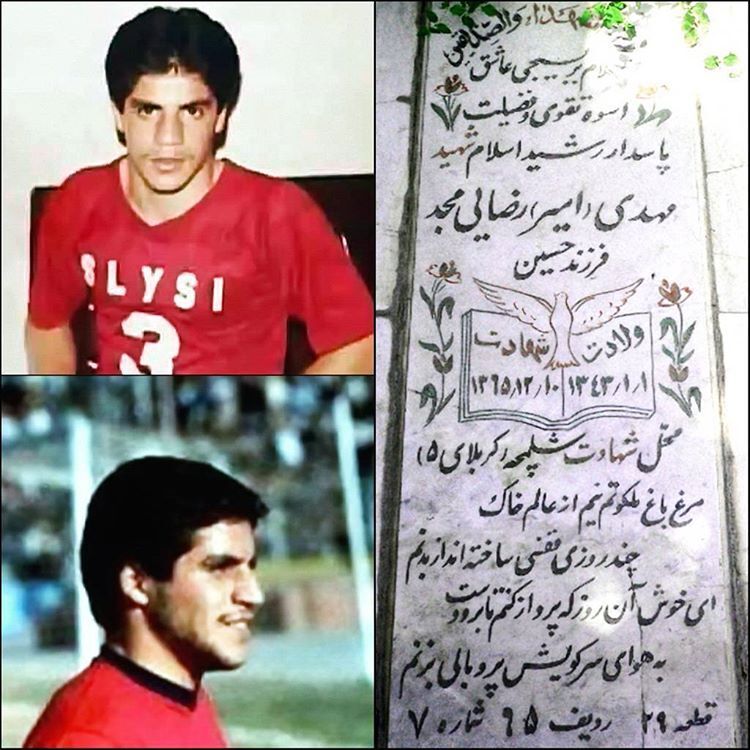 SLYSI
3
شهداء والصدیقین
سلام بر بسیجی عاشق
اسوه تقوی و فضیلت
پاسدار رشید اسلام شهید
مهدی (امیر) رضایی مجد
فرزند حسین
ولادت شهادت
۱۳۴۳٫۱٫۱ ۱۳۶۵٫۱۲٫۱۰
محل شهادت شلمچه (کربلای ۵)
مرغ باغ ملکوتم نیم از عالم خاک
چند روزی قفسی ساخته اند از بدنم
ای خوش آن روز که پرواز کنم تا بر دوست
به هوای سر کویش پر و بالی بزنم
قطعه ۲۹ ردیف ۶۵ شماره ۷